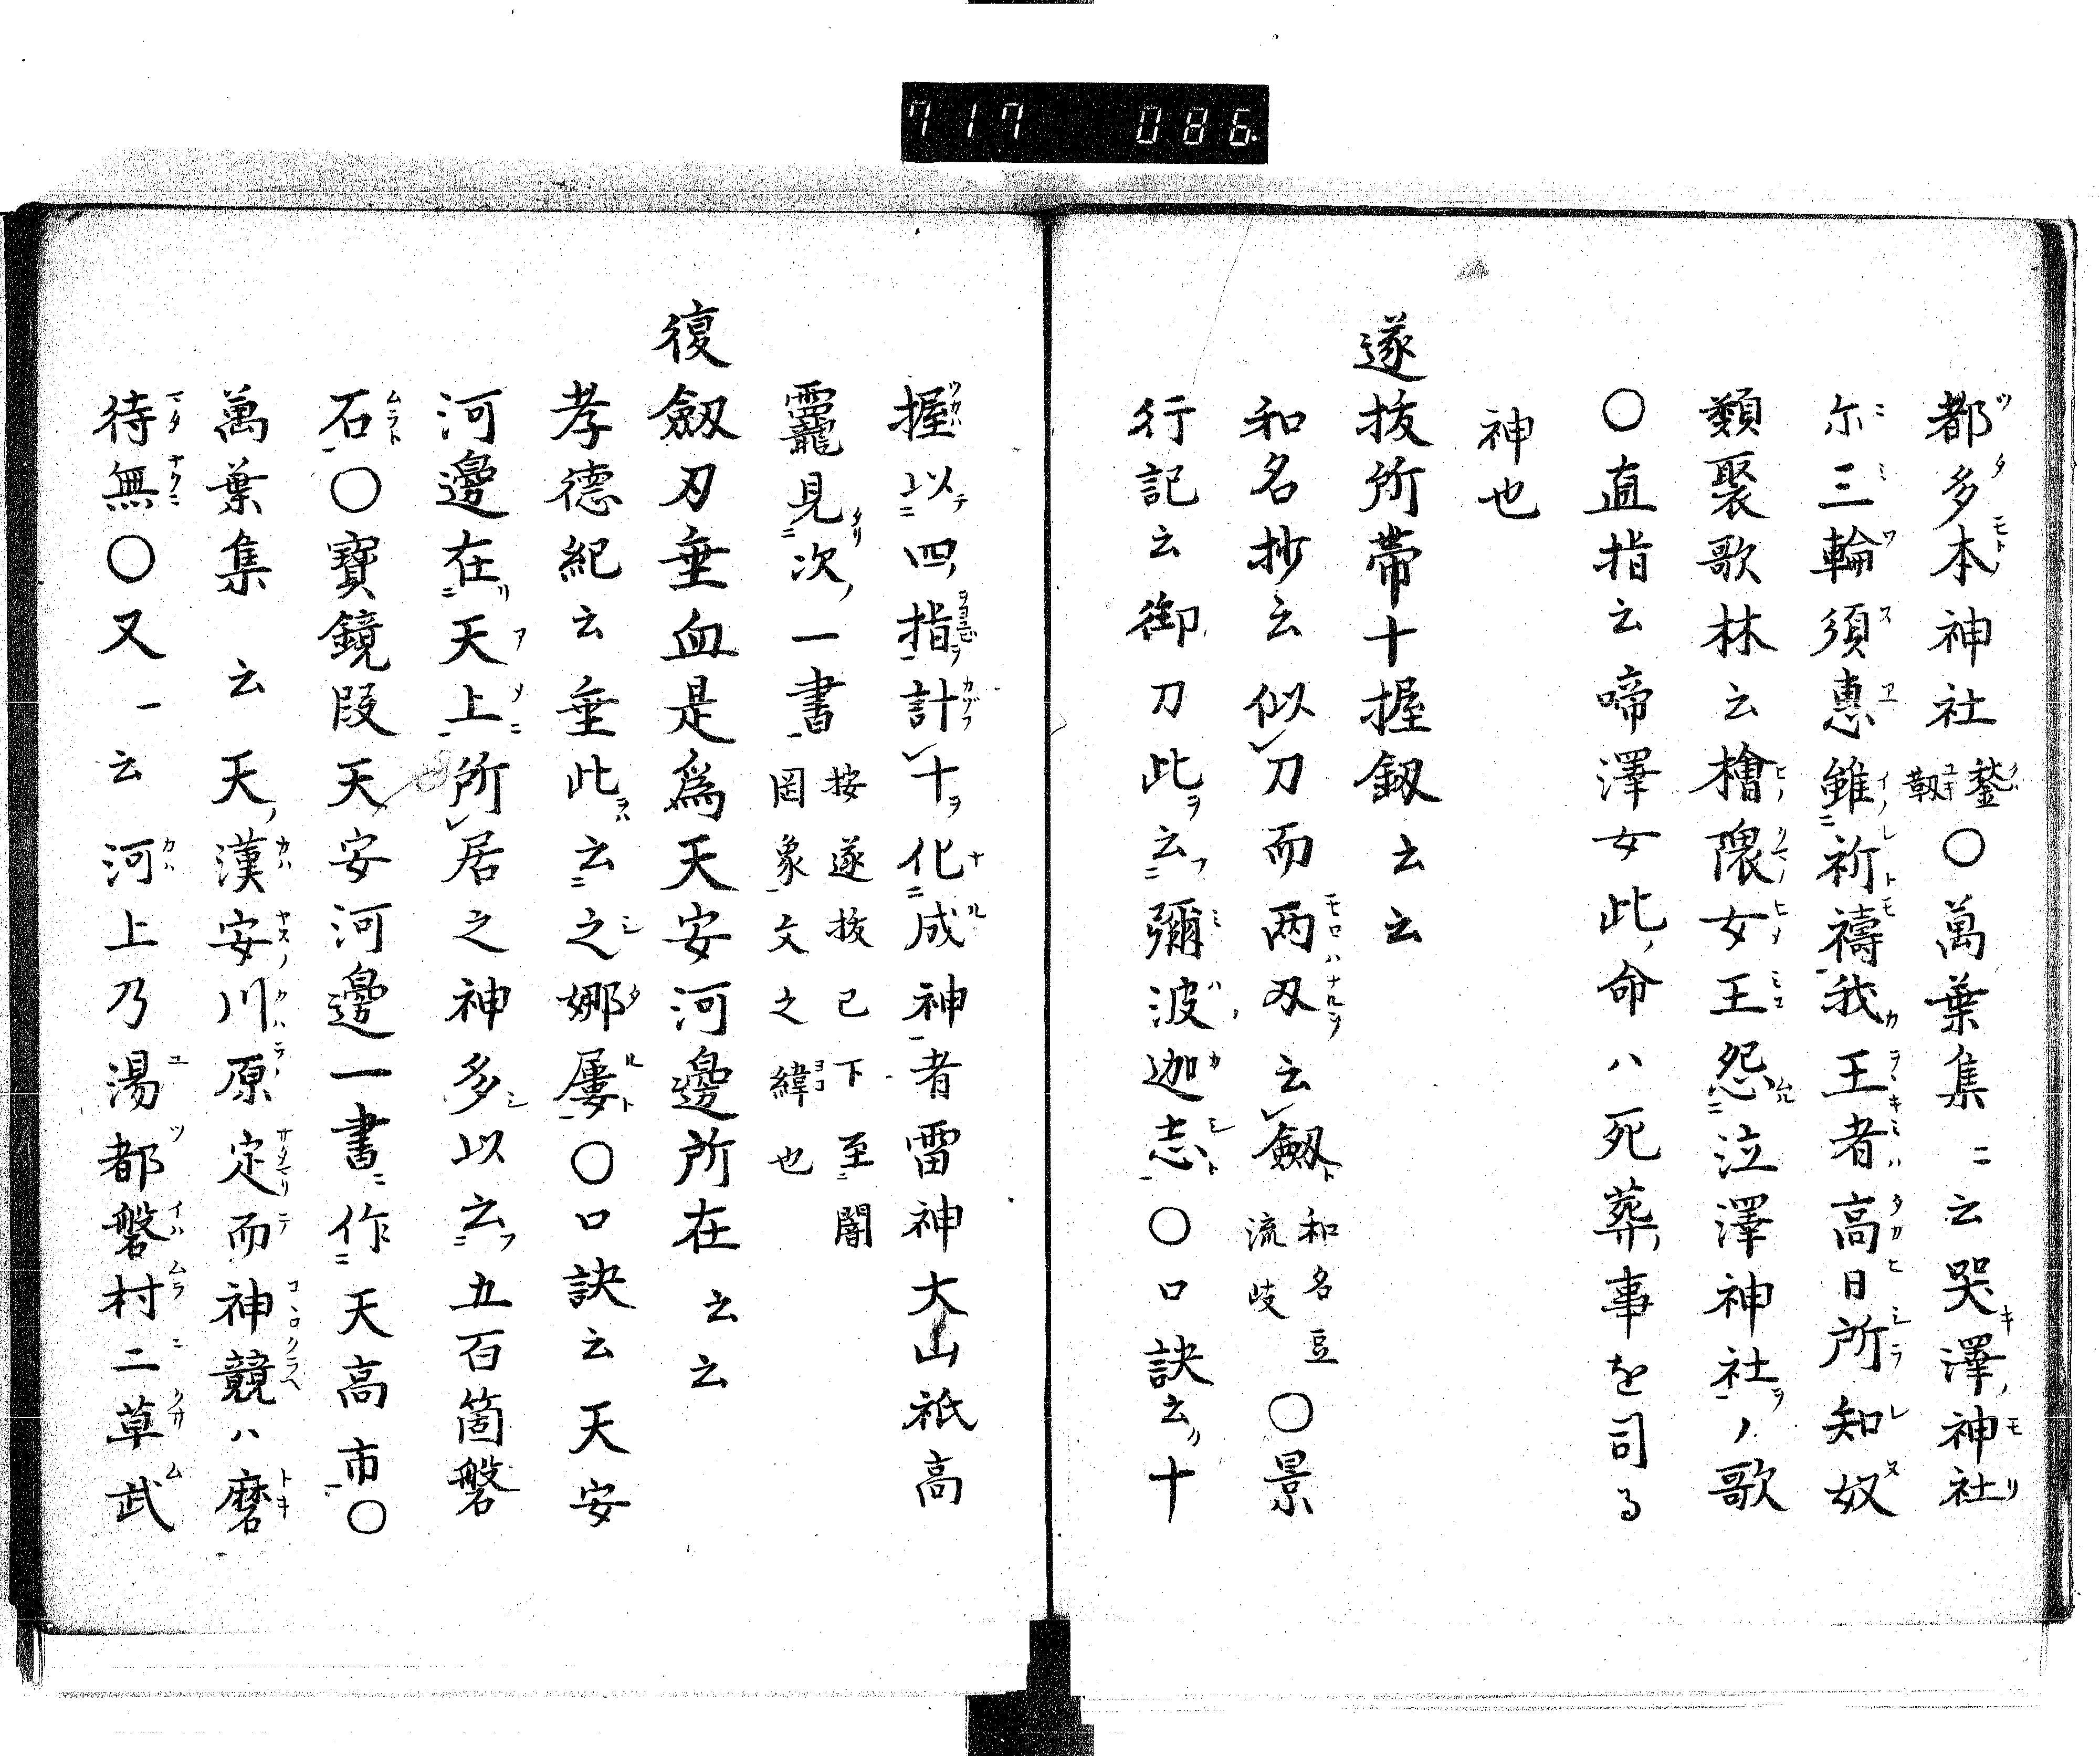 717 086
都多本神社鍫靱〇萬葉集ニ云哭澤神社
尓三輪須惠雖祈禱我王者高日所知奴
類聚歌林云檜隈女王怨泣澤神社ノ歌
〇直指云啼澤女此ノ命ハ死葬ノ事を司る
神也
遂抜所帶十握釼云云
和名抄云似刀而两刄云劔和名豆流岐〇景
行記云御刀此ヲ云彌波迦志〇口訣云十
握以四指計十化成神者雷神大山祇高
龗見次一書按遂抜已下至闇罔象文之緯也
復劔刃垂血是爲天安河邊所在云云
孝德紀云垂此云之娜屢〇口訣云天安
河邊在天上所居之神多以云五百箇磐
石〇寶鏡段天安河邊一書ニ作天高市〇
萬葉集云天漢安川原定而神競ハ磨
待無〇又一云河上乃湯都磐村二草武